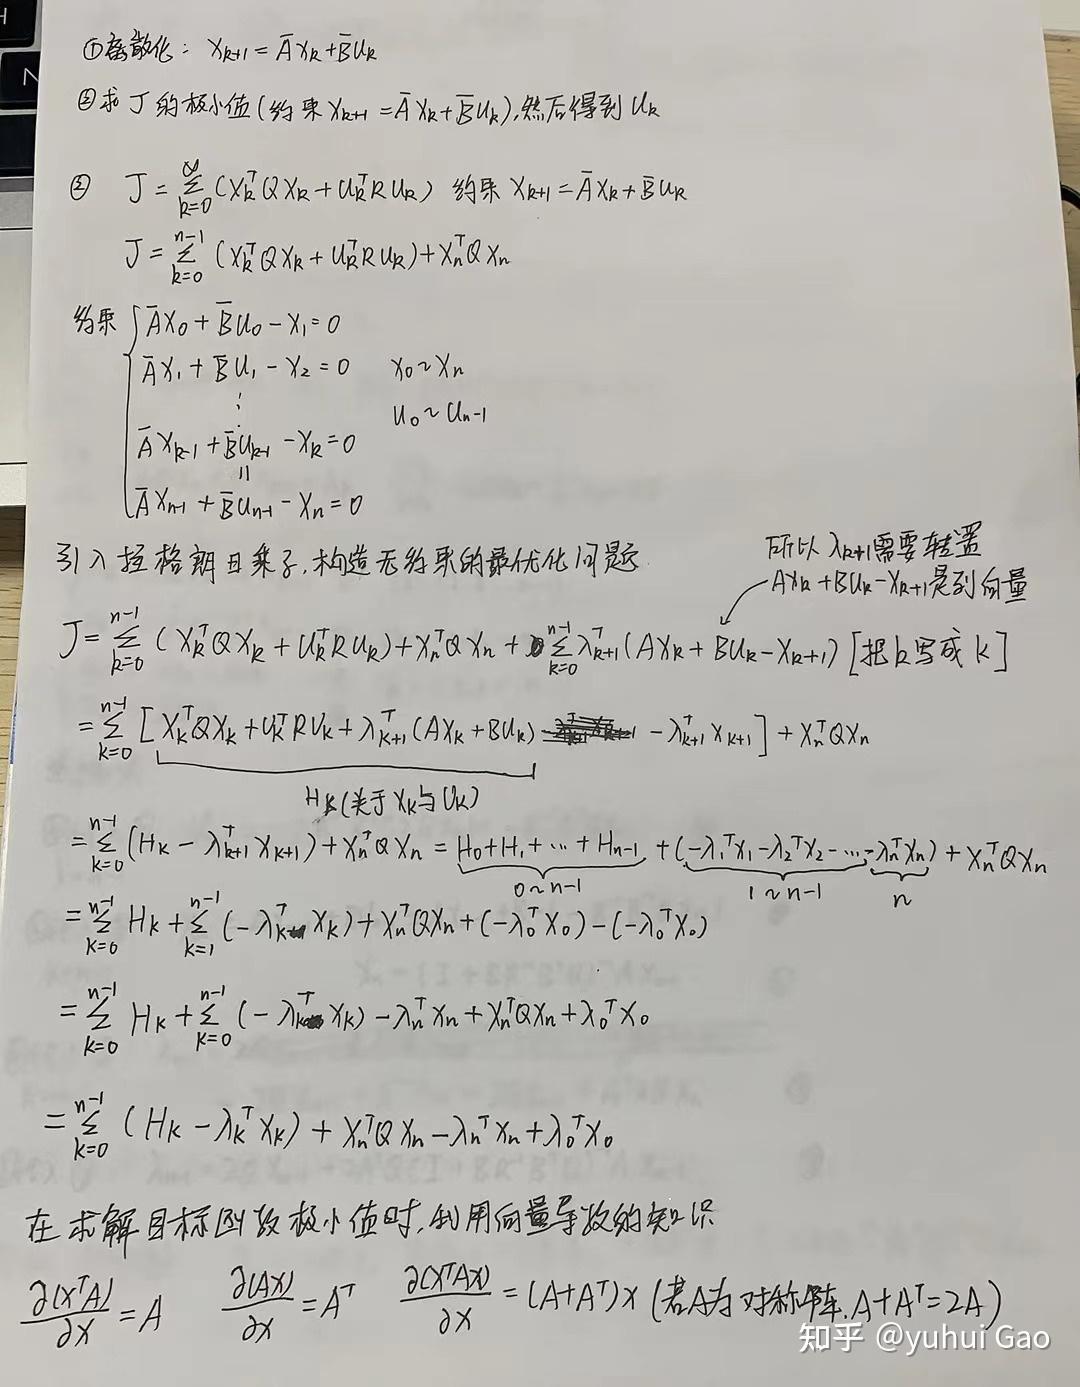 ①离散化: X_{k+1} = ĀX_k + B̄U_k
②求J的极小值(约束X_{k+1} = ĀX_k + B̄U_k),然后得到U_k
② J = ∑_{k=0}^{∞} (X_k^T Q X_k + U_k^T R U_k) 约束 X_{k+1} = ĀX_k + B̄U_k
J = ∑_{k=0}^{n-1} (X_k^T Q X_k + U_k^T R U_k) + X_n^T Q X_n
约束 { ĀX_0 + B̄U_0 - X_1 = 0
ĀX_1 + B̄U_1 - X_2 = 0 X_0 ~ X_n
⋮ U_0 ~ U_{n-1}
ĀX_{k-1} + B̄U_{k-1} - X_k = 0
||
ĀX_{n-1} + B̄U_{n-1} - X_n = 0
引入拉格朗日乘子,构造无约束的最优化问题
所以λ_{k+1}需要转置
AX_k + BU_k - X_{k+1}是列向量
J = ∑_{k=0}^{n-1} (X_k^T Q X_k + U_k^T R U_k) + X_n^T Q X_n + ∑_{k=0}^{n-1} λ_{k+1}^T (AX_k + BU_k - X_{k+1}) [把k写成k]
= ∑_{k=0}^{n-1} [X_k^T Q X_k + U_k^T R U_k + λ_{k+1}^T (AX_k + BU_k) - λ_{k+1}^T X_{k+1}] + X_n^T Q X_n
H_k(关于X_k与U_k)
= ∑_{k=0}^{n-1} (H_k - λ_{k+1}^T X_{k+1}) + X_n^T Q X_n = H_0 + H_1 + ⋯ + H_{n-1} + (-λ_1^T X_1 - λ_2^T X_2 - ⋯ - λ_n^T X_n) + X_n^T Q X_n
0~n-1 1~n-1 n
= ∑_{k=0}^{n-1} H_k + ∑_{k=1}^{n-1} (-λ_k^T X_k) + X_n^T Q X_n + (-λ_0^T X_0) - (-λ_0^T X_0)
= ∑_{k=0}^{n-1} H_k + ∑_{k=0}^{n-1} (-λ_k^T X_k) - λ_n^T X_n + X_n^T Q X_n + λ_0^T X_0
= ∑_{k=0}^{n-1} (H_k - λ_k^T X_k) + X_n^T Q X_n - λ_n^T X_n + λ_0^T X_0
在求解目标函数极小值时,利用向量导数的知识
∂(X^T A)/∂X = A ∂(AX)/∂X = A^T ∂(X^T AX)/∂X = (A+A^T)X (若A为对称阵,A+A^T=2A)
知乎 @yuhui Gao